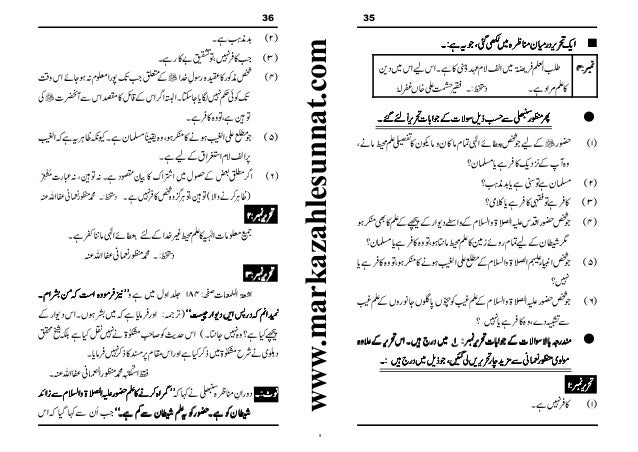 35
■ ایک تحریر درمیان مناظرہ میں لکھی گئی، جو یہ ہے:۔
نمبر:۳
طلب العلم فریضۃ میں الف لام عہد ذہنی کا ہے۔ اس لیے اس میں دین
کا علم مراد ہے۔ دستخط:۔ فقیر حشمت علی خاں غفرلہٗ
● پھر منظور سنبھلی سے حسب ذیل سوالات کے جوابات تحریراً لئے گئے۔
(۱) حضور ﷺ کے لیے جو شخص، بہ عطائے الٰہی تمام ما کان و ما یکون کا تفصیلی علم محیط مانے،
وہ آپ کے نزدیک کافر ہے یا مسلمان؟
(۲) مسلمان ہے تو سنی ہے یا بدمذہب؟
(۳) کافر ہے تو فقہی کافر ہے یا کلامی؟
(۴) جو شخص حضور اقدس علیہ الصلاۃ والسلام کے واسطے دیوار کے پیچھے کے علم کا بھی منکر ہو
مگر شیطان کے لیے تمام روئے زمین کا علم محیط مانتا ہو، تو وہ کافر ہے یا مسلمان؟
(۵) جو شخص انبیاء علیہم الصلاۃ والسلام کے مطلع علی الغیب ہونے کا منکر ہو، تو وہ کافر ہے یا
نہیں؟
(۶) جو شخص حضور علیہ الصلاۃ والسلام کے علم غیب کو بچوں پاگلوں جانوروں کے علم غیب
سے تشبیہ دے، وہ کافر ہے یا نہیں؟
● مندرجہ بالا سوالات کے جوابات تحریر نمبر: ۱ میں درج ہیں۔ اس تحریر کے علاوہ
مولوی منظور نعمانی سے مزید چار تحریریں لی گئیں، جو ذیل میں درج ہیں:۔
تحریر نمبر:۱
(۱) کافر نہیں ہے۔
www.markazahlesunnat.com
36
(۲) بدمذہب ہے۔
(۳) جب کافر نہیں، تو تشقیق بے کار ہے۔
(۴) شخص مذکور کا عقیدہ رسول خدا ﷺ کے متعلق جب تک پورا معلوم نہ ہو جائے اس وقت
تک کوئی حکم نہیں لگایا جا سکتا۔ البتہ اگر اس کے قائل کا مقصد اس سے آنحضرت ﷺ کی
توہین ہے، تو وہ کافر ہے۔
(۵) جو مطلع علی الغیب ہونے کا منکر ہو، وہ یقیناً مسلمان ہے۔ کیونکہ ظاہر یہ ہے کہ الغیب
پر الف لام استغراق کے لیے ہے۔
(۶) اگر مطلق بعض کے حصول میں اشتراک کا بیان مقصود ہے۔ نہ توہین، نہ عبارت مُظہِر
(ظاہر کرنے والا) توہین تو ہرگز وہ شخص کافر نہیں ہے۔ دستخط:۔ محمد منظور نعمانی عفا اللہ عنہ
تحریر نمبر:۲
جمیع معلومات الٰہیہ کا علم محیط غیر خدا کے لئے بہ عطائے الٰہی ماننا کفر ہے۔
دستخط:۔ محمد منظور نعمانی عفا اللہ عنہ
تحریر نمبر:۳
اشعۃ اللمعات صفحہ: ۱۸۴ جلد اول میں ہے، ”نیز فرمودہ است کہ من بشرام۔
نمیدانم کہ در پس ایں دیوار چیست“ (ترجمہ: اور فرمایا ہے کہ میں بشر ہوں۔ اس دیوار کے
پیچھے کیا ہے؟ وہ نہیں جانتا۔) اس حدیث کو صاحب مشکوٰۃ نے نہیں نقل کیا ہے بلکہ شیخ محقق
دہلوی نے شرح مشکوٰۃ میں ذکر کیا ہے اور اس مقام پر سند کا ذکر نہیں فرمایا۔
محمد منظور النعمانی عفا اللہ عنہ
نوٹ:۔ دوران مناظرہ سنبھلی نے کہا کہ ”گمراہ کرنے کا علم حضور علیہ الصلاۃ والسلام سے زائد
شیطان کو ہے۔ حضور کو یہ علم شیطان سے کم ہے۔“ جب اُن سے کہا گیا کہ اس